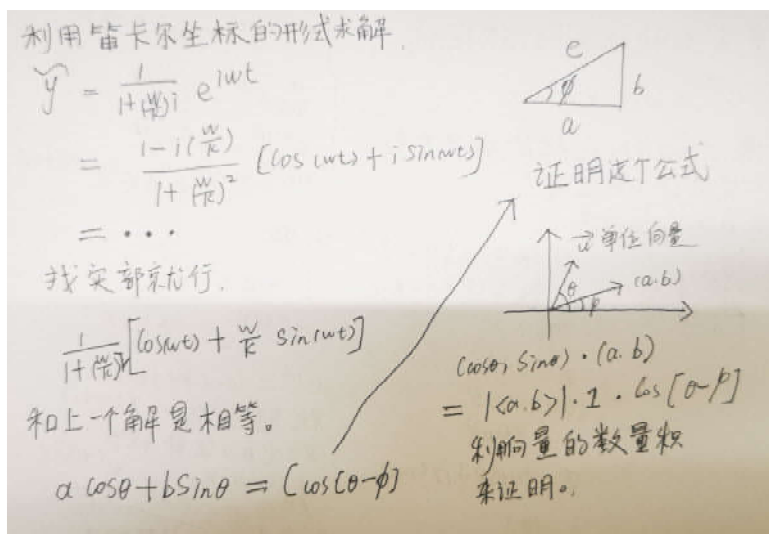 利用笛卡尔坐标的形式求解.
ỹ = 1/(1+(w/k)i) e^{iwt}
= (1-i(w/k))/(1+(w/k)²) [cos(wt)+i sin(wt)]
= ···
找实部就行.
1/(1+(w/k)²) [cos(wt) + w/k sin(wt)]
和上一个解是相等。
a cosθ+bsinθ = C cos(θ-φ)
c
φ
b
a
证明这个公式
u 单位向量
θ
(a.b)
φ
(cosθ, sinθ)·(a.b)
= |<a.b>|·1·cos[θ-φ]
利用向量的数量积
来证明。